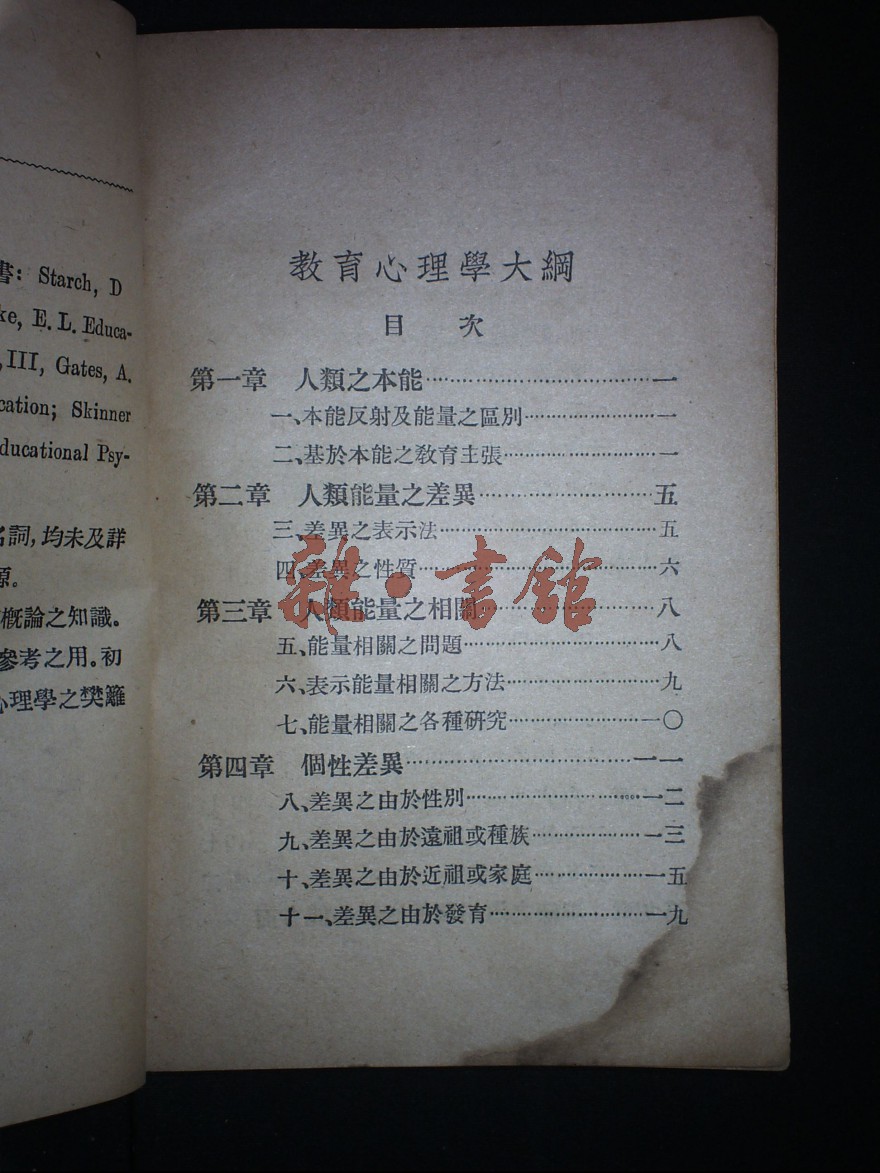 書: Starch, D
ke, E. L. Educa-
, III, Gates, A.
cation; Skinner
ducational Psy-
名詞,均未及詳
源。
概論之知識。
參考之用。初
心理學之樊籬
教育心理學大綱
目 次
第一章 人類之本能……………………一
一、本能反射及能量之區別……………一
二、基於本能之教育主張………………一
第二章 人類能量之差異………………五
三、差異之表示法………………………五
四、差異之性質…………………………六
第三章 人類能量之相關………………八
五、能量相關之問題……………………八
六、表示能量相關之方法………………九
七、能量相關之各種研究………………一〇
第四章 個性差異………………………一一
八、差異之由於性別……………………一二
九、差異之由於遠祖或種族……………一三
十、差異之由於近祖或家庭……………一五
十一、差異之由於發育…………………一九
雜·書館